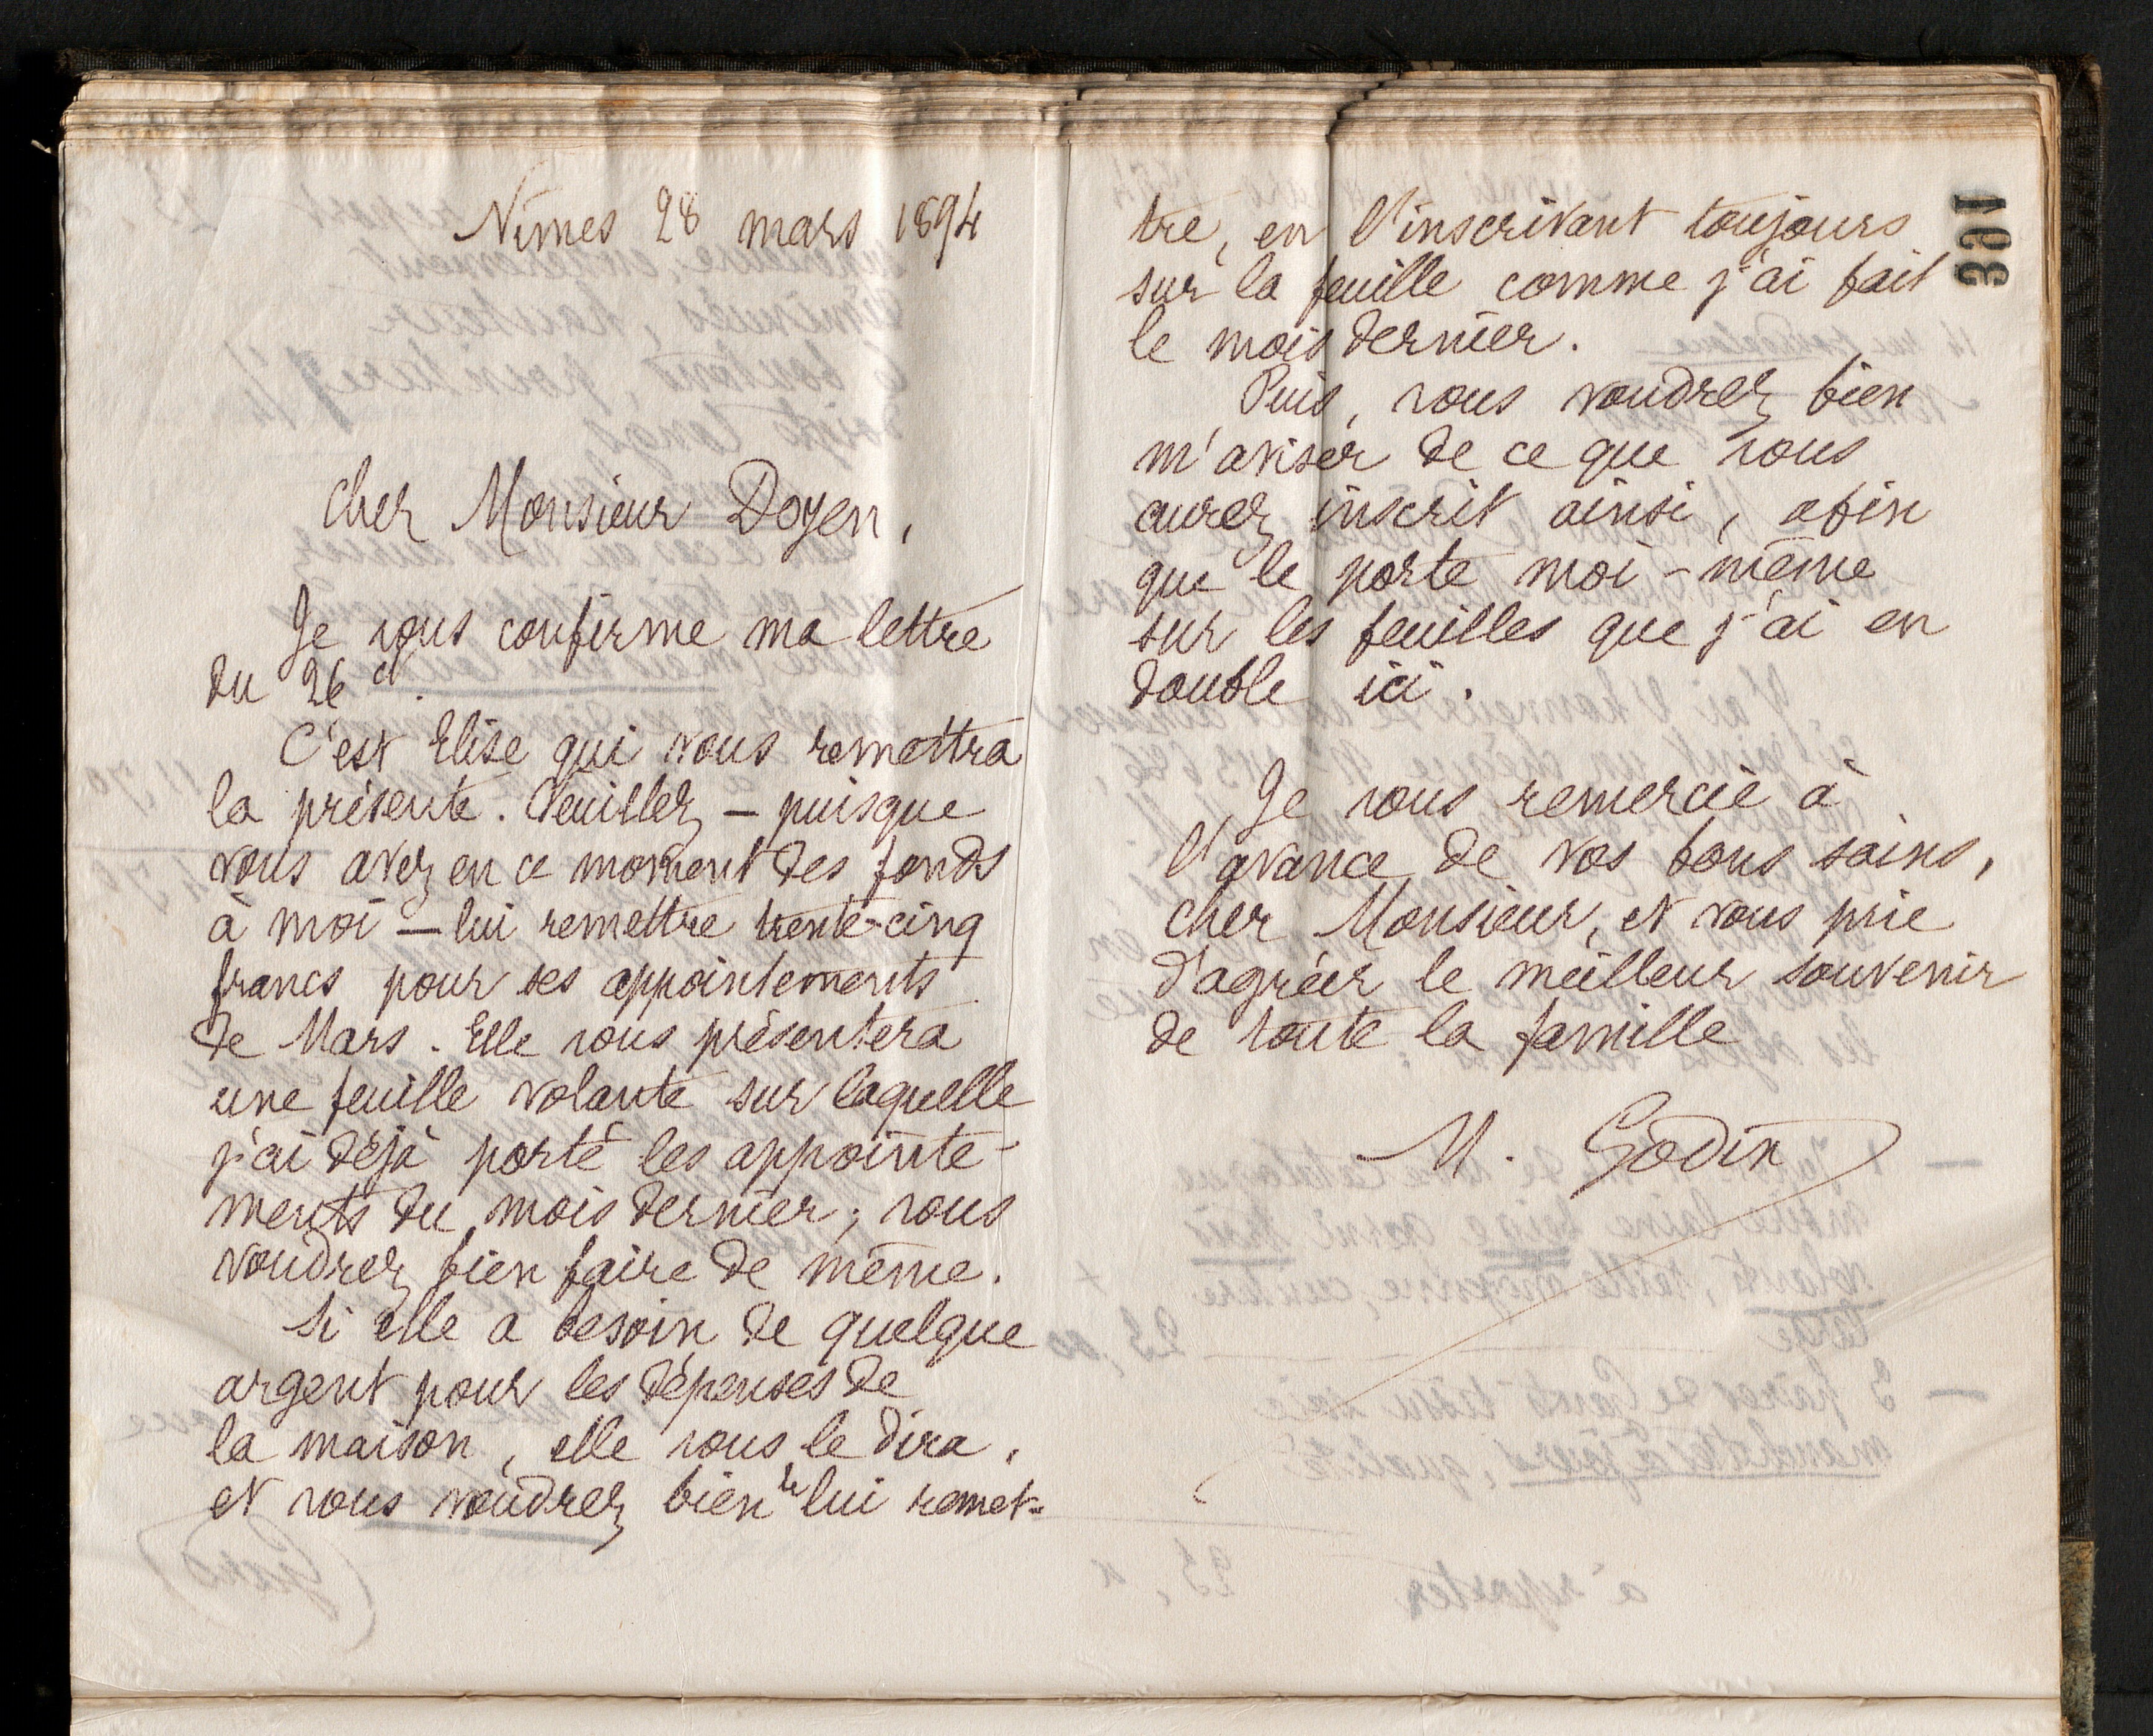 Nimes 28 mars 1894
Cher Monsieur Doyen,
Je vous confirme ma lettre
du 26 ct.
C'est Elise qui vous remettra
la présente. Veuillez — puisque
vous avez en ce moment des fonds
à moi — lui remettre trente-cinq
francs pour ses appointements
de Mars. Elle vous présentera
une feuille volante sur laquelle
j'ai déjà porté les appointe-
ments du mois dernier; vous
voudrez bien faire de même.
Si elle a besoin de quelque
argent pour les dépenses de
la maison, elle vous le dira,
et vous voudrez bien le lui remet-
tre, en l'inscrivant toujours
sur la feuille comme j'ai fait
le mois dernier.
Puis, vous voudrez bien
m'aviser de ce que vous
aurez inscrit ainsi, afin
que le porte moi-même
sur les feuilles que j'ai en
double ici.
Je vous remercie à
l'avance de vos bons soins,
cher Monsieur, et vous prie
d'agréer le meilleur souvenir
de toute la famille
M. Godin
301